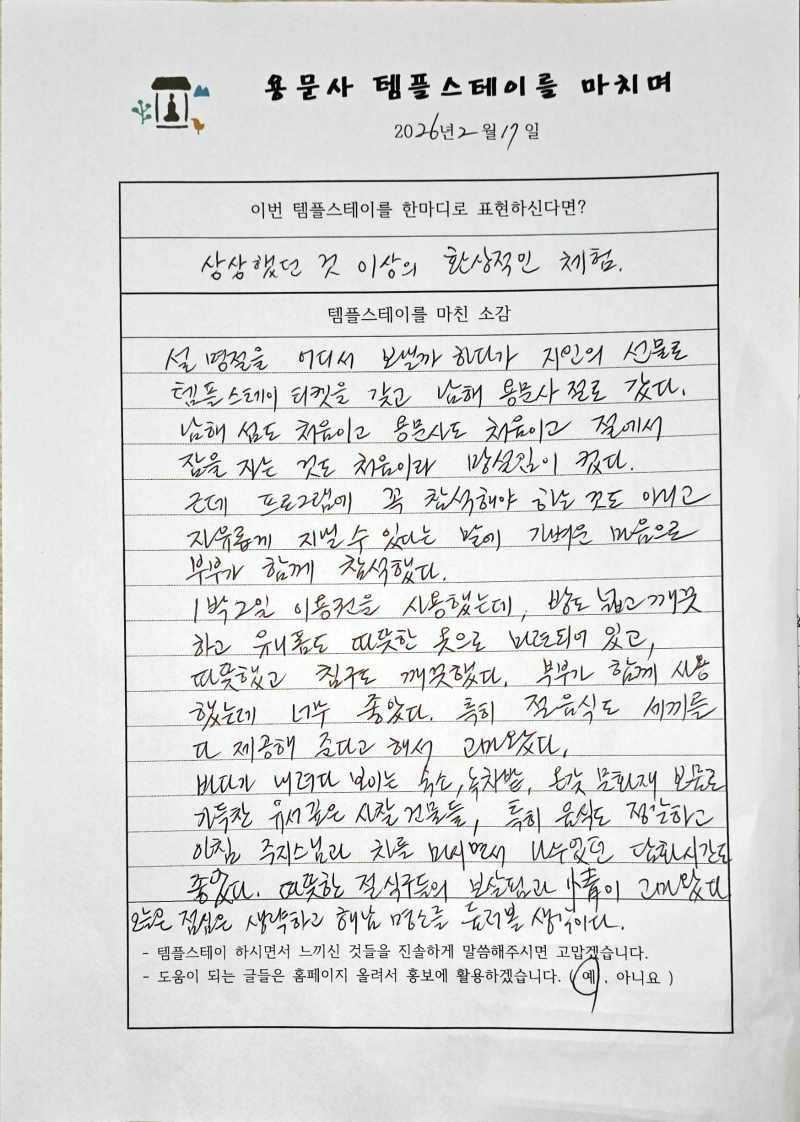 용문사 템플스테이를 마치며
2026년 2월 17일
이번 템플스테이를 한마디로 표현하신다면?
상상했던 것 이상의 환상적인 체험.
템플스테이를 마친 소감
설 명절을 어디서 보낼까 하다가 지인의 선물로
템플스테이 티켓을 갖고 남해 용문사 절로 갔다.
남해 섬도 처음이고 용문사도 처음이고 절에서
잠을 자는 것도 처음이라 망설임이 컸다.
근데 프로그램에 꼭 참석해야 하는 것도 아니고
자유롭게 지낼 수 있다는 말에 가벼운 마음으로
부부가 함께 참석했다.
1박2일 이용전을 사용했는데, 방도 넓고 깨끗
하고 유니폼도 따뜻한 옷으로 마련되어 있고,
따뜻했고 침구도 깨끗했다. 부부가 함께 사용
했는데 너무 좋았다. 특히 절음식도 세끼를
다 제공해 준다고 해서 고마왔다.
바다가 내려다 보이는 숙소, 녹차밭, 온갖 문화재 보물로
가득찬 유서깊은 사찰 건물들, 특히 음식도 정갈하고
아침 주지스님과 차를 마시면서 나누었던 담화시간도
좋았다. 따뜻한 절 식구들의 보살핌과 情이 고마왔다
오늘은 점심은 생략하고 해남 명소를 둘러볼 생각이다.
- 템플스테이 하시면서 느끼신 것들을 진솔하게 말씀해주시면 고맙겠습니다.
- 도움이 되는 글들은 홈페이지 올려서 홍보에 활용하겠습니다. ( 예 , 아니요 )